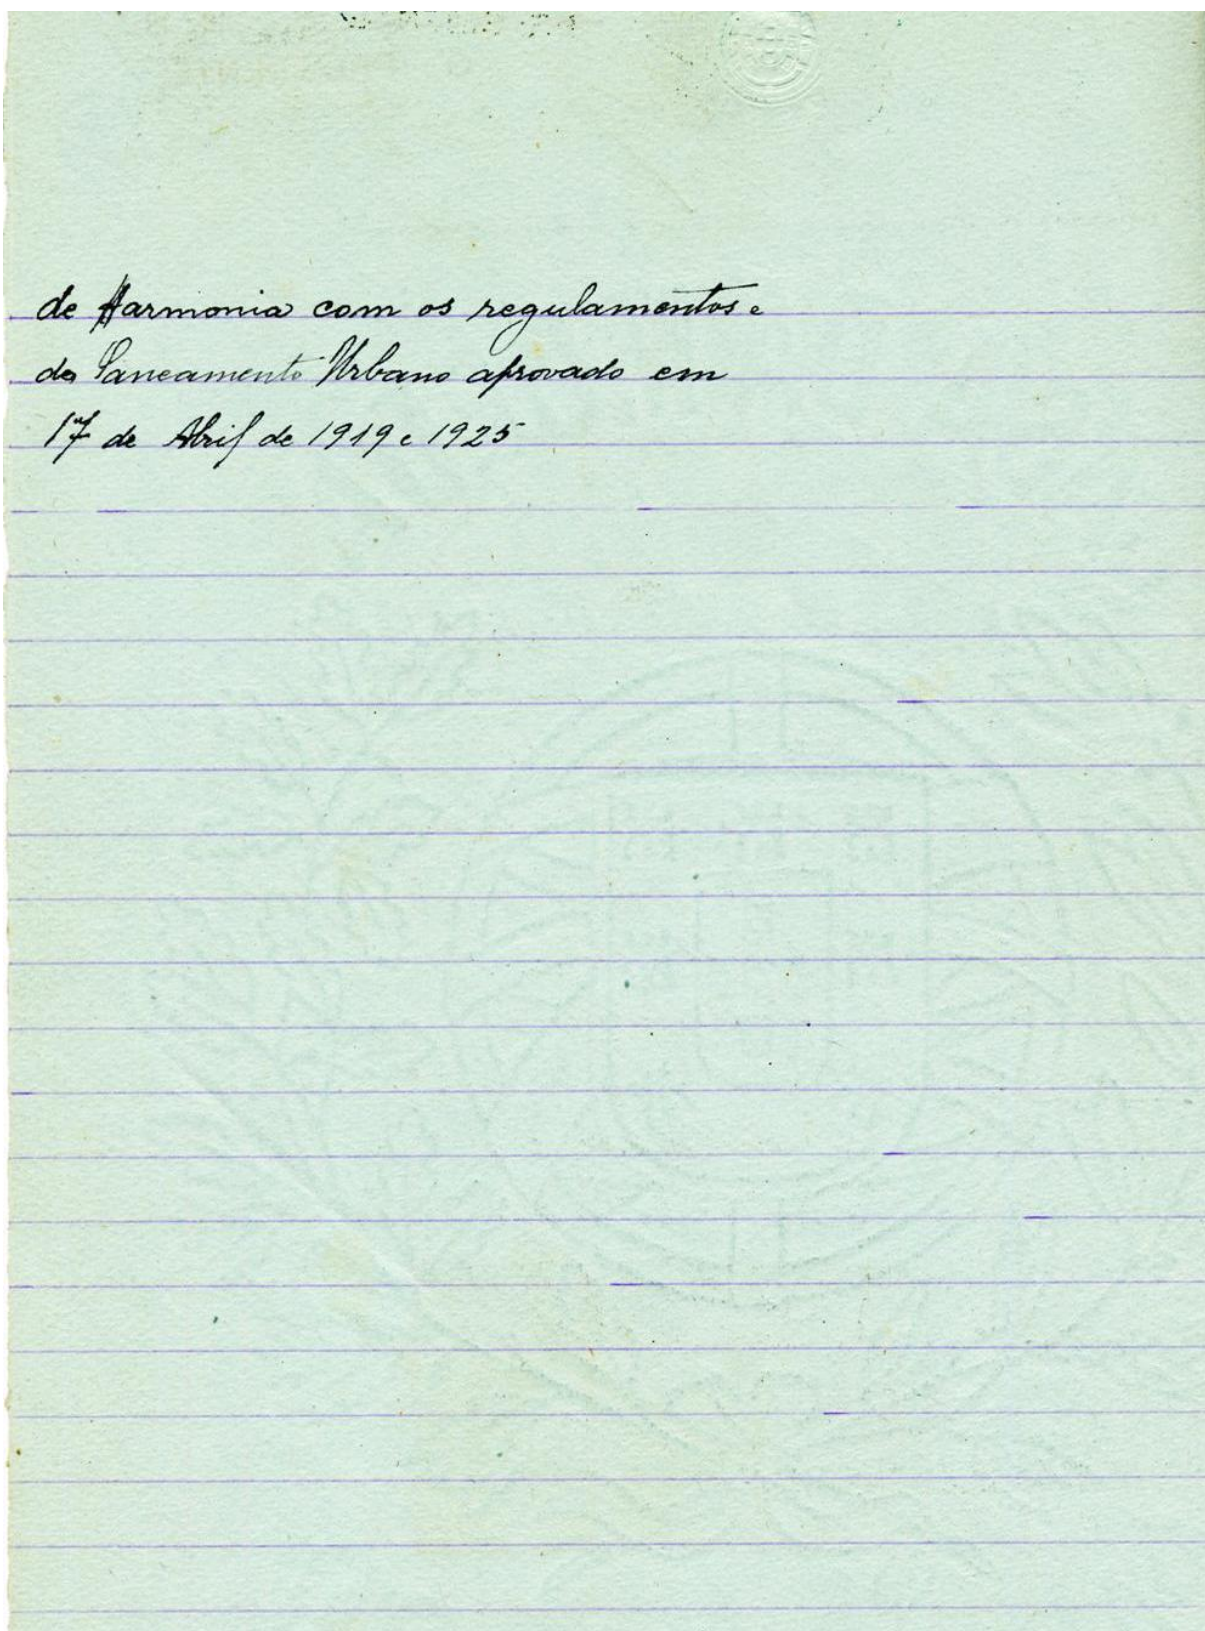 de Harmonia com os regulamentos e
do Saneamento Urbano aprovado em
17 de Abril de 1919 e 1925